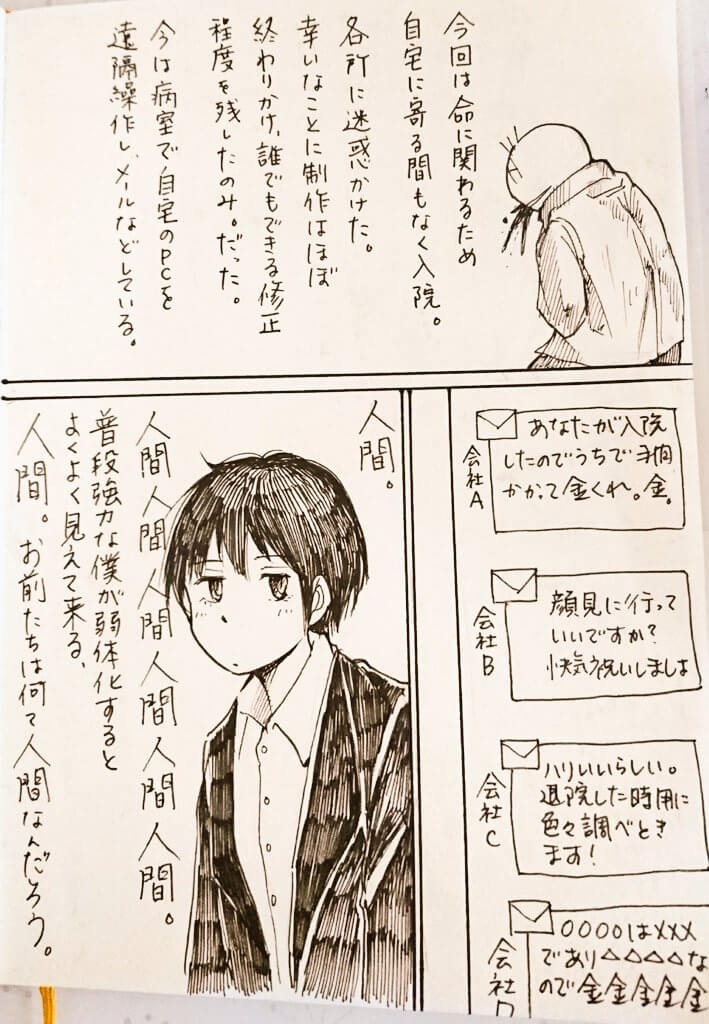 今回は命に関わるため
自宅に寄る間もなく入院。
各所に迷惑かけた。
幸いなことに制作はほぼ
終わりかけ、誰でもできる修正
程度を残したのみ。だった。
今は病室で自宅のPCを
遠隔操作し、メールなどしている。
会社A
あなたが入院
したのでうちで手間
かかって金くれ。金。
会社B
顔見に行って
いいですか?
快気祝いしましょ
会社C
ハリいいらしい。
退院した時用に
色々調べとき
ます!
会社D
〇〇〇〇は×××
であり△△△△な
ので金金金金金
人間。
人間人間人間人間人間人間。
普段強力な僕が弱体化すると
よくよく見えて来る、
人間。お前たちは何て人間なんだろう。